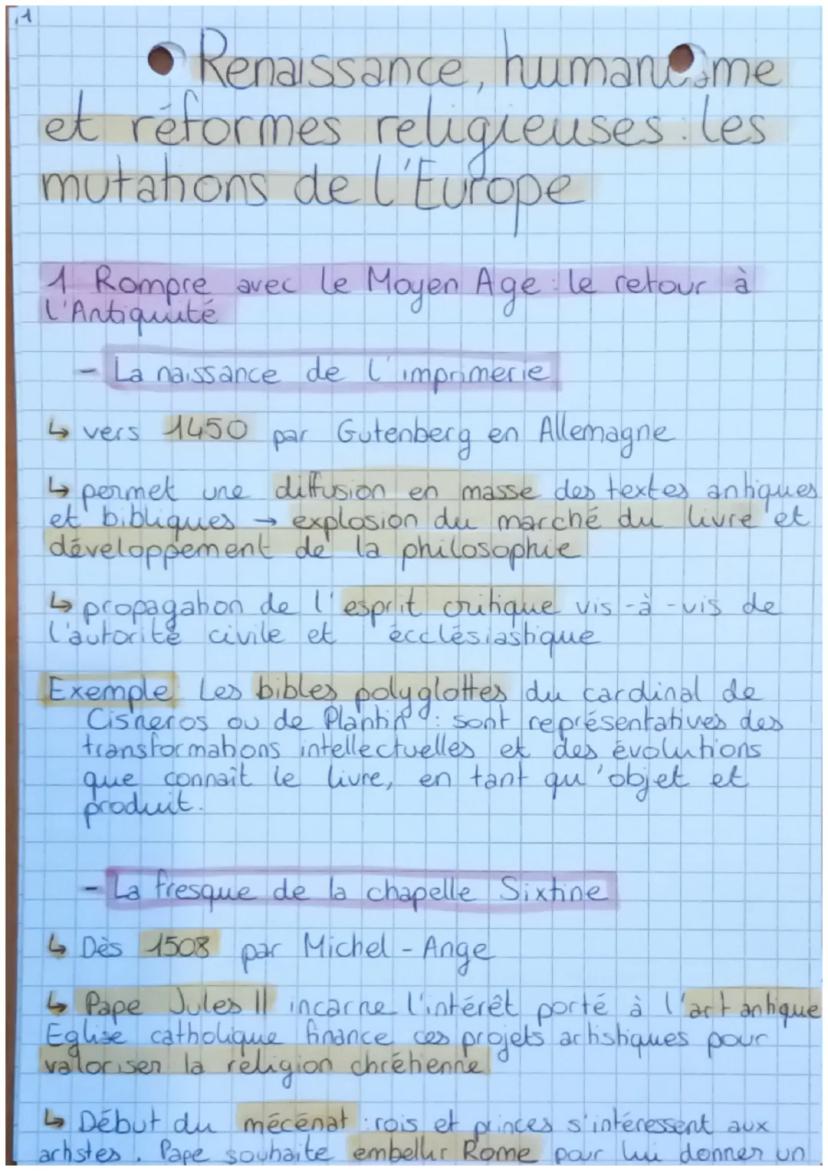 1
Renaissance, humanisme
et réformes religieuses : les
mutations de l'Europe
1 Rompre avec le Moyen Age : le retour à
l'Antiquité
- La naissance de l'imprimerie
↳ vers 1450 par Gutenberg en Allemagne
↳ permet une diffusion en masse des textes antiques
et bibliques → explosion du marché du livre et
développement de la philosophie
↳ propagation de l'esprit critique vis-à-vis de
l'autorité civile et écclésiastique
Exemple : Les bibles polyglottes du cardinal de
Cisneros ou de Plantin : sont représentatives des
transformations intellectuelles et des évolutions
que connaît le livre, en tant qu'objet et
produit.
- La fresque de la chapelle Sixtine
↳ Dès 1508 par Michel-Ange
↳ Pape Jules II incarne l'intérêt porté à l'art antique
Eglise catholique finance ces projets artistiques pour
valoriser la religion chrétienne
↳ Début du mécénat : rois et princes s'intéressent aux
artistes. Pape souhaite embellir Rome pour lui donner un